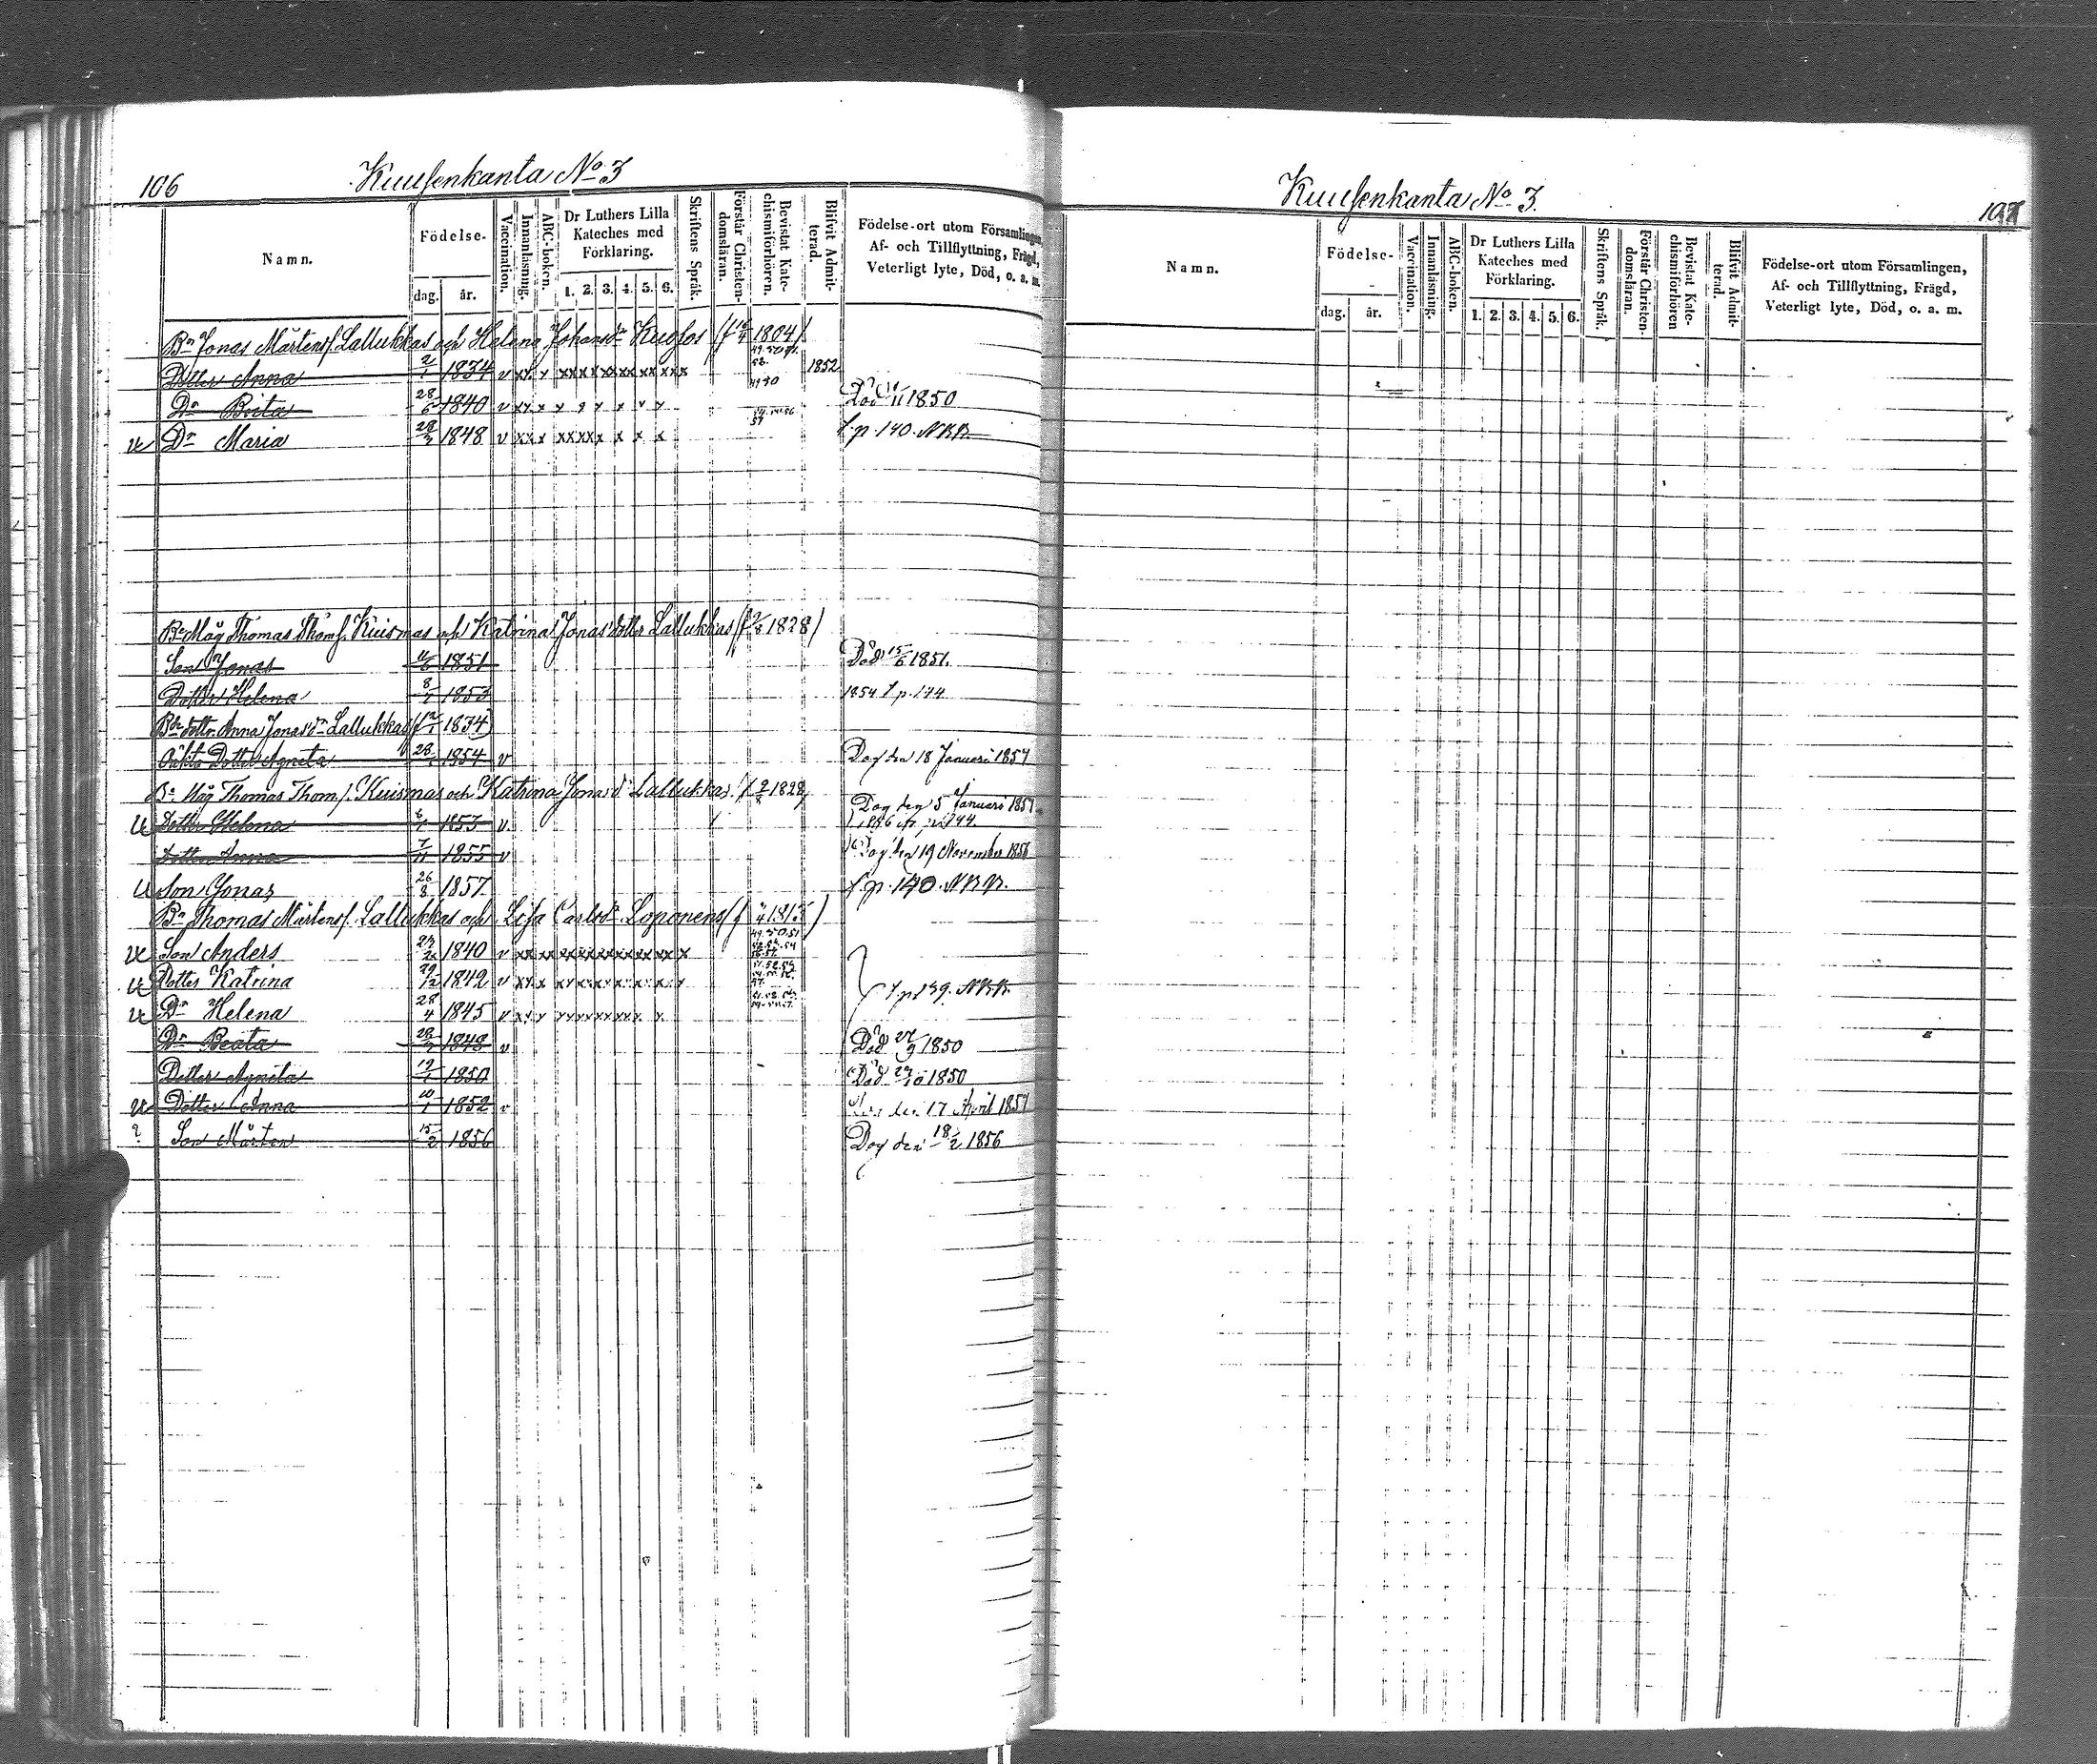 106 Kuusenkanta No 3
Namn. Födelse- dag. år. Vaccination. Innanläsning. ABC-boken. Dr Luthers Lilla Kateches med Förklaring. 1. 2. 3. 4. 5. 6. Skriftens Språk. Förstår Christen-domsläran. Bevistat Kate-chismiförhören. Blifvit Admit-terad. Födelse-ort utom Församlingen, Af- och Tillflyttning, Frägd, Veterligt lyte, Död, o. a. m.
Bn Jonas Mårtens. Lallukkas och Helena Johansdr 1804
Dotter Anna 2/1 1834 v 1852
Dr Brita 28/5 1840 v 49 50 Död 1850
Dr Maria 28/3 1848 v f. p. 140. NKB.
Bn Måg Thomas Thoms. Kuismas och Katrina Jonas dotter Lallukkas (f 2/8 1828)
Son Jonas 11/6 1851 Död 15/6 1851.
Dotter Helena 8/7 1853 1854 f p. 144
Bdr dottr. Anna Jonasdr Lallukkas (f 2/1 1834)
Oäkta Dotter Agneta 28 1854 v Dog den 18 Januari 1857
Bn Måg Thomas Thoms. Kuismas och Katrina Jonasdr Lallukkas. (f 2/8 1828)
Dotter Helena 1853 v Dog den 5 Januari 1857
Dotter Anna 7/11 1855 v Dog den 19 November 1856
Son Jonas 26/8 1857 f. p. 140. NKB.
Bn Thomas Mårtens. Lallukkas och Lisa Carlsdr Loponens
Son Anders 1840 v
Dotter Katrina 29/12 1842 v
Dr Helena 28/4 1845 v f. p. 139. NKB.
Dr Beata 28 1848 v Död 1850
Dotter Agneta 19/1 1850 Död 1850
Dotter Anna 10/1 1852 v den 17 April 1857
Son Mårten 15/2 1856 Dog den 18/2 1856
Kuusenkanta No 3. 107
Namn. Födelse- dag. år. Vaccination. Innanläsning. ABC-boken. Dr Luthers Lilla Kateches med Förklaring. 1. 2. 3. 4. 5. 6. Skriftens Språk. Förstår Christen-domsläran. Bevistat Kate-chismiförhören Blifvit Admit-terad. Födelse-ort utom Församlingen, Af- och Tillflyttning, Frägd, Veterligt lyte, Död, o. a. m.